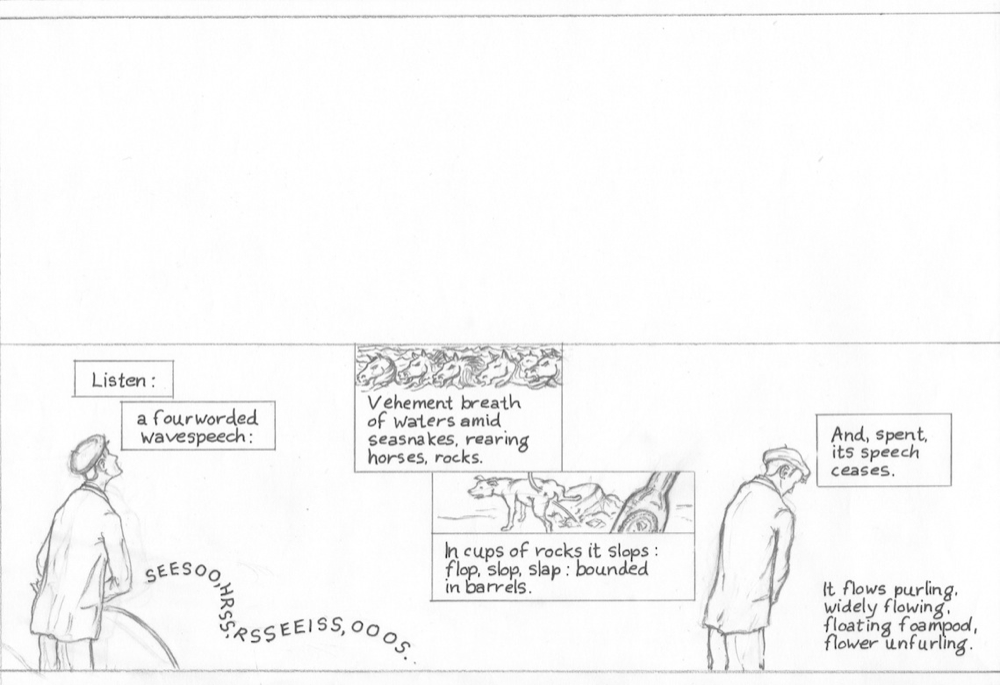 Listen :
a fourworded
wavespeech :
SEESOO, HRSS, RSSEEISS, OOOS.
Vehement breath
of waters amid
seasnakes, rearing
horses, rocks.
In cups of rocks it slops :
flop, slop, slap : bounded
in barrels.
And, spent,
its speech
ceases.
It flows purling,
widely flowing,
floating foampod,
flower unfurling.